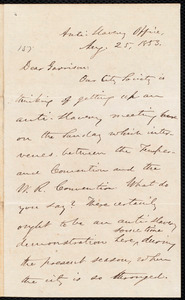 Anti-Slavery Office,
Aug. 25, 1853.
Dear Garrison:
Our City Society is
thinking of getting up an
anti-slavery meeting here
on the Sunday which inter-
venes between the Temper-
ance Convention and the
W. R. Convention. What do
you say? There certainly
ought to be an anti-slavery
demonstration here, sometime
during
the present season, when
the city is so thronged.